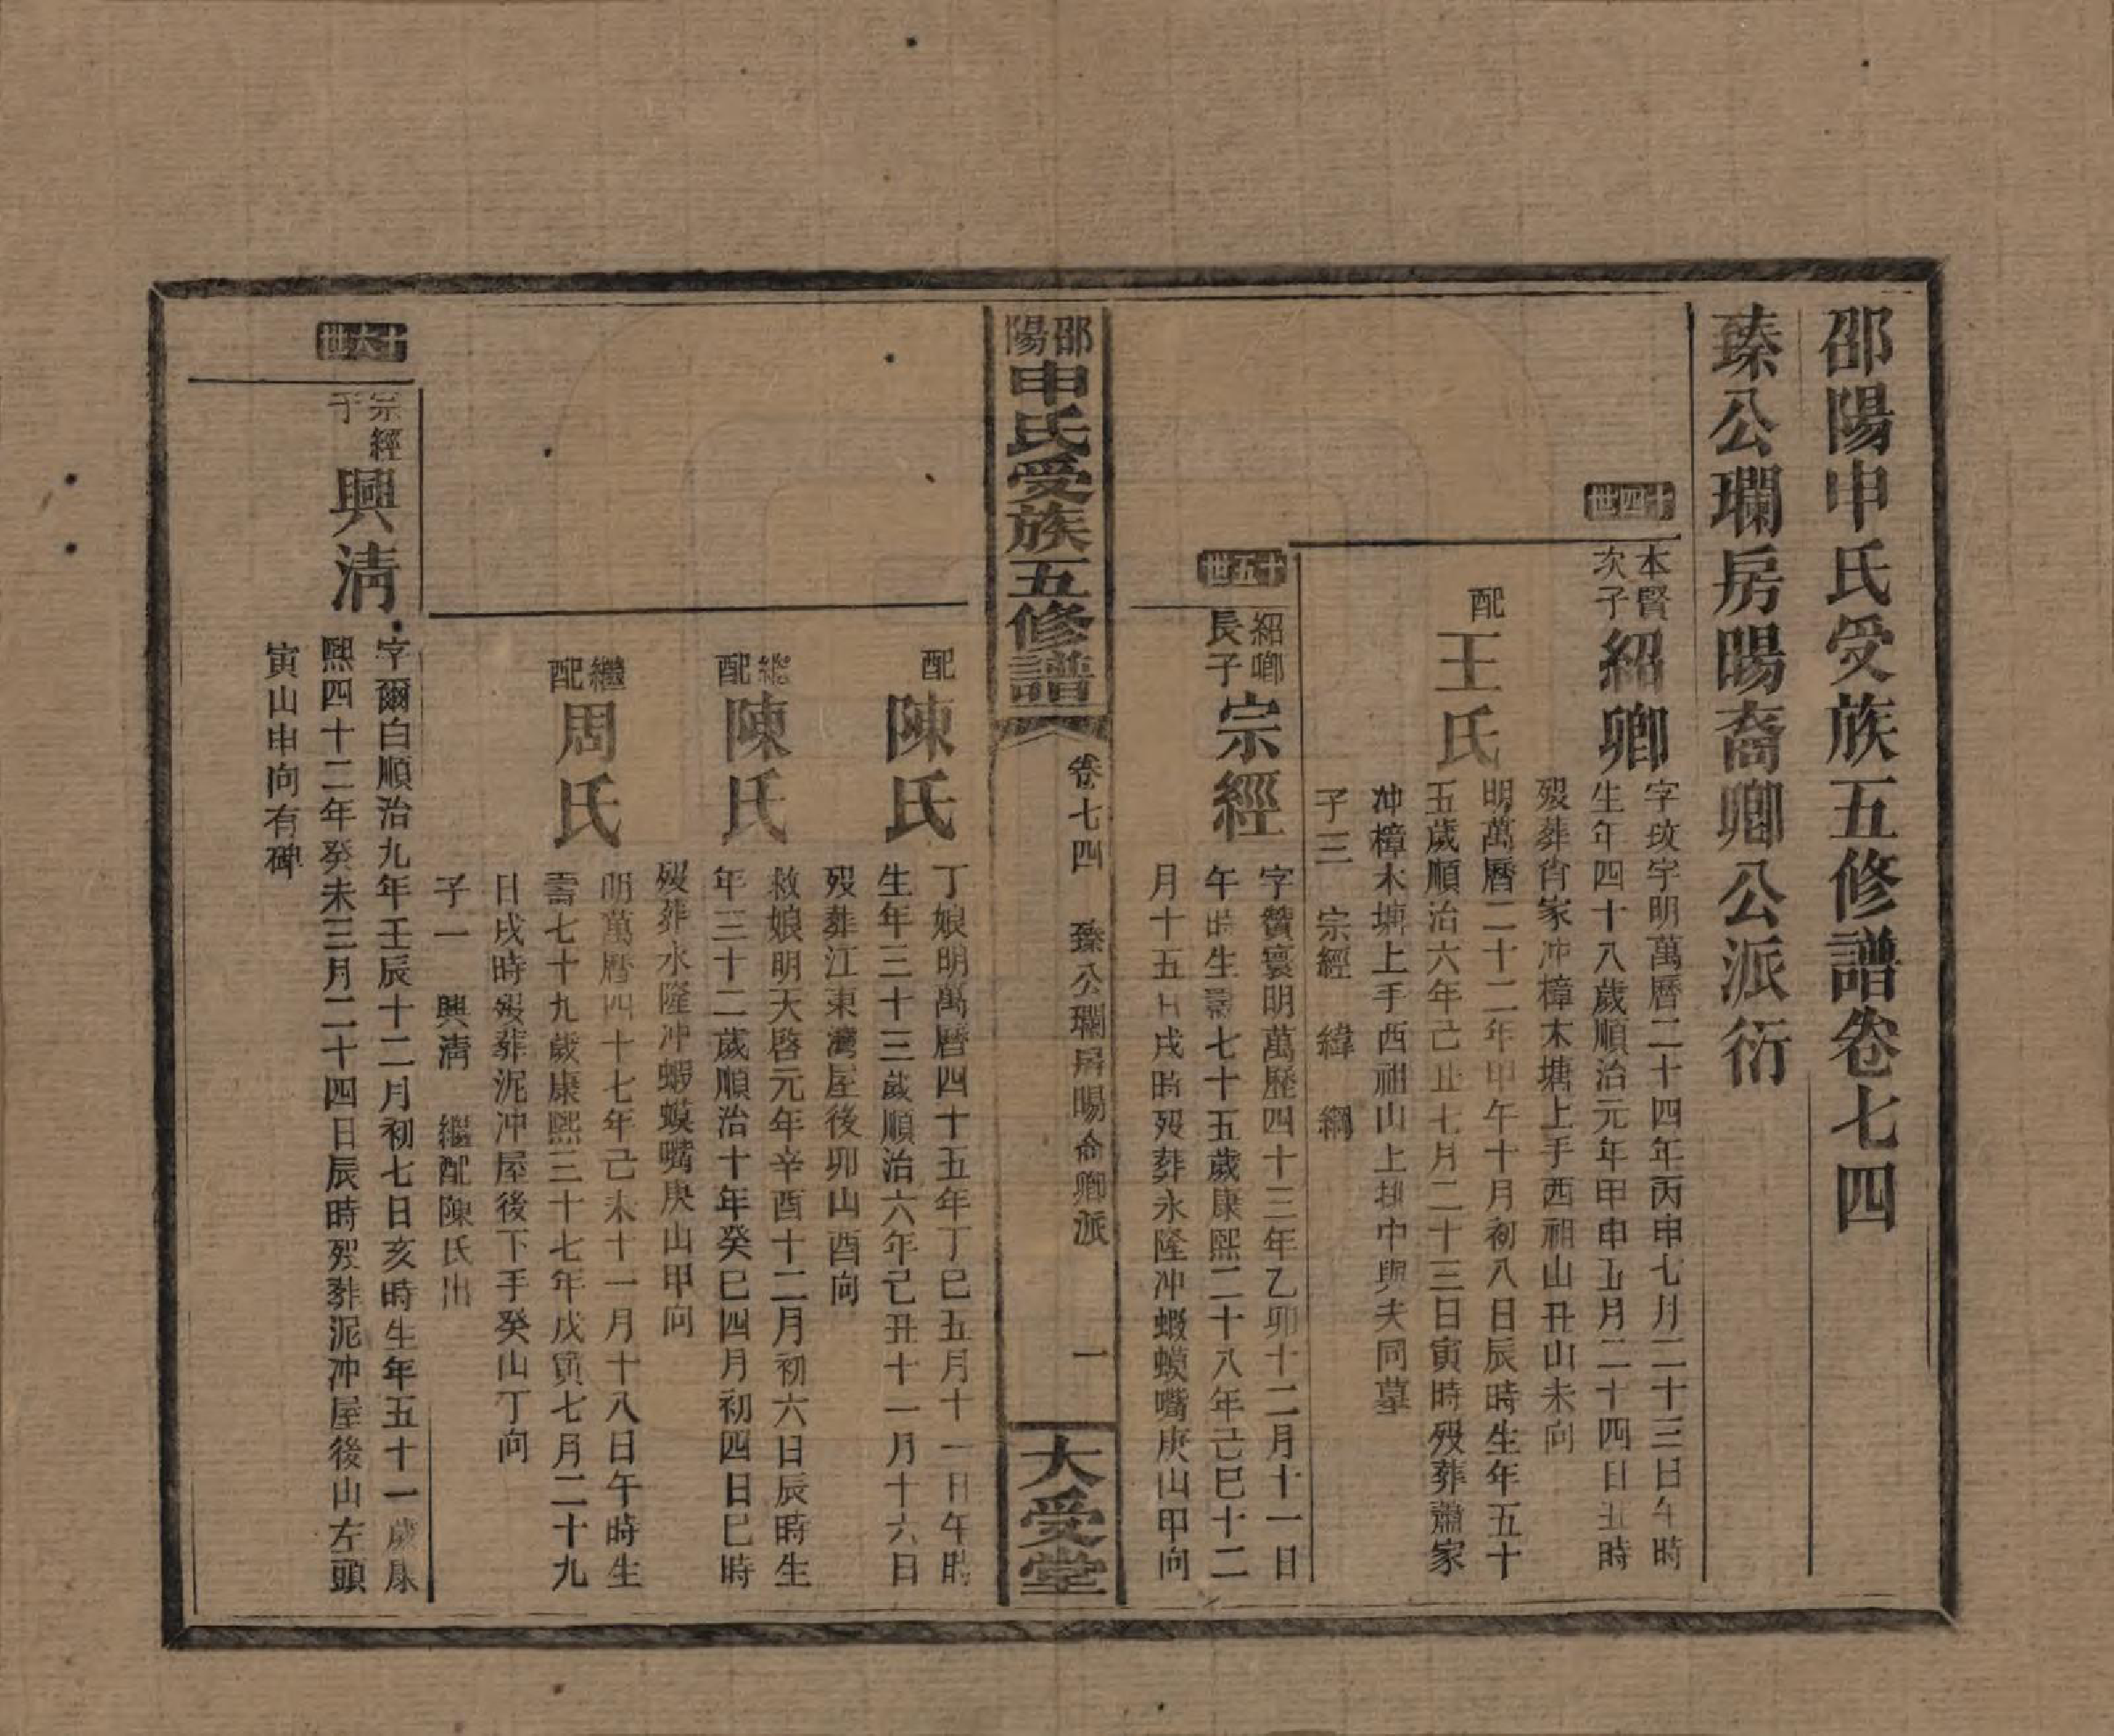 邵陽申氏受族五修譜卷七四
臻公瓓房暘裔卿公派衍
十四世
本賢
次子
紹卿
字玟宇明萬曆二十四年丙申七月二十三日午時
生年四十八歲順治元年甲申五月二十四日丑時
歿葬肖家冲樟木塘上手西祖山丑山未向
配
王氏
明萬曆二十二年甲午十月初八日辰時生年五十
五歲順治六年己丑七月二十三日寅時歿葬蕭家
冲樟木塘上手西祖山上排中與夫同墓
子三 宗經 緯 綱
十五世
紹卿
長子
宗經
字贊寰明萬歷四十三年乙卯十二月十一日
午時生壽七十五歲康熙二十八年己巳十二
月十五日戌時歿葬永隆冲蝦蟆嘴庚山甲向
邵陽申氏受族五修譜
卷七四 臻公瓓房暘裔卿派 一
大受堂
配
陳氏
丁娘明萬曆四十五年丁巳五月十一日午時
生年三十三歲順治六年己丑十一月十六日
歿葬江東灣屋後卯山酉向
繼
配
陳氏
救娘明天啓元年辛酉十二月初六日辰時生
年三十二歲順治十年癸巳四月初四日巳時
歿葬水隆冲蝦蟆嘴庚山甲向
繼
配
周氏
明萬曆四十七年己未十一月十八日午時生
壽七十九歲康熙三十七年戊寅七月二十九
日戌時歿葬泥冲屋後下手癸山丁向
子一 興清 繼配陳氏出
十六世
宗經
子
興清
字爾白順治九年壬辰十二月初七日亥時生年五十一歲康
熙四十二年癸未三月二十四日辰時歿葬泥冲屋後山左頭
寅山申向有碑